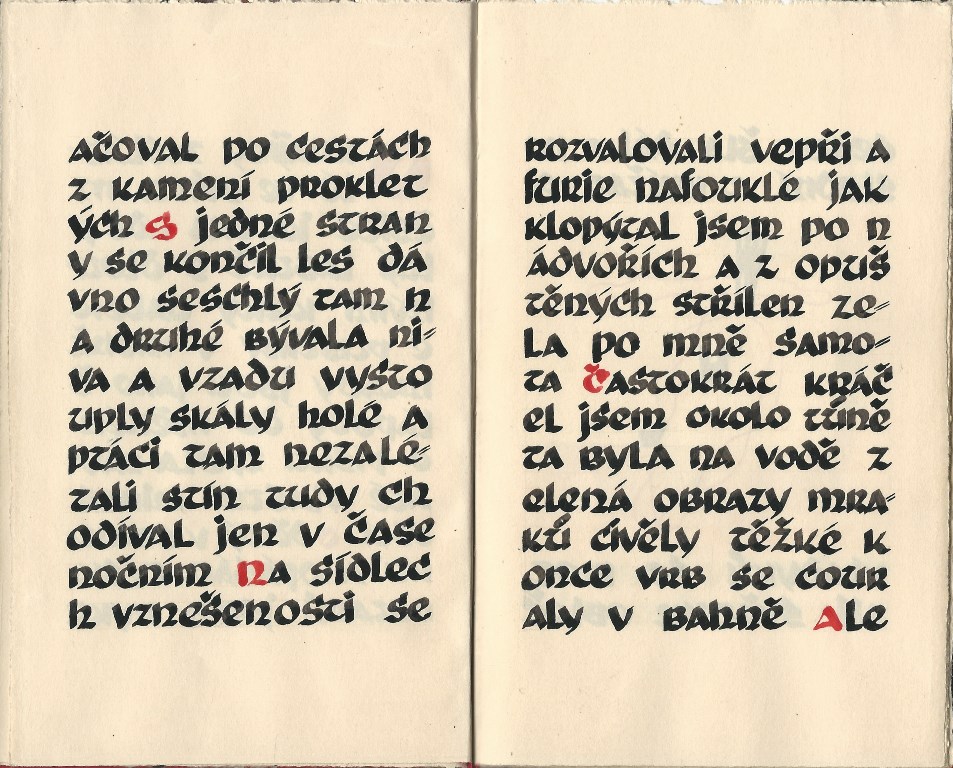 ačoval po cestách
z kamení proklet
ých S jedné stran
y se končil les dá
vno seschlý tam n
a druhé bývala ni-
va a vzadu vysto
uply skály holé a
ptáci tam nezalé-
tali stín tudy ch
odíval jen v čase
nočním Na sídlec
h vznešenosti se
rozvalovali vepři a
furie nafouklé jak
klopýtal jsem po n
ádvořích a z opuš
těných střílen ze-
la po mně samo-
ta Častokrát kráč
el jsem okolo tůně
ta byla na vodě z
elená obrazy mra-
ků čivěly těžké k
once vrb se cour
aly v bahně Ale